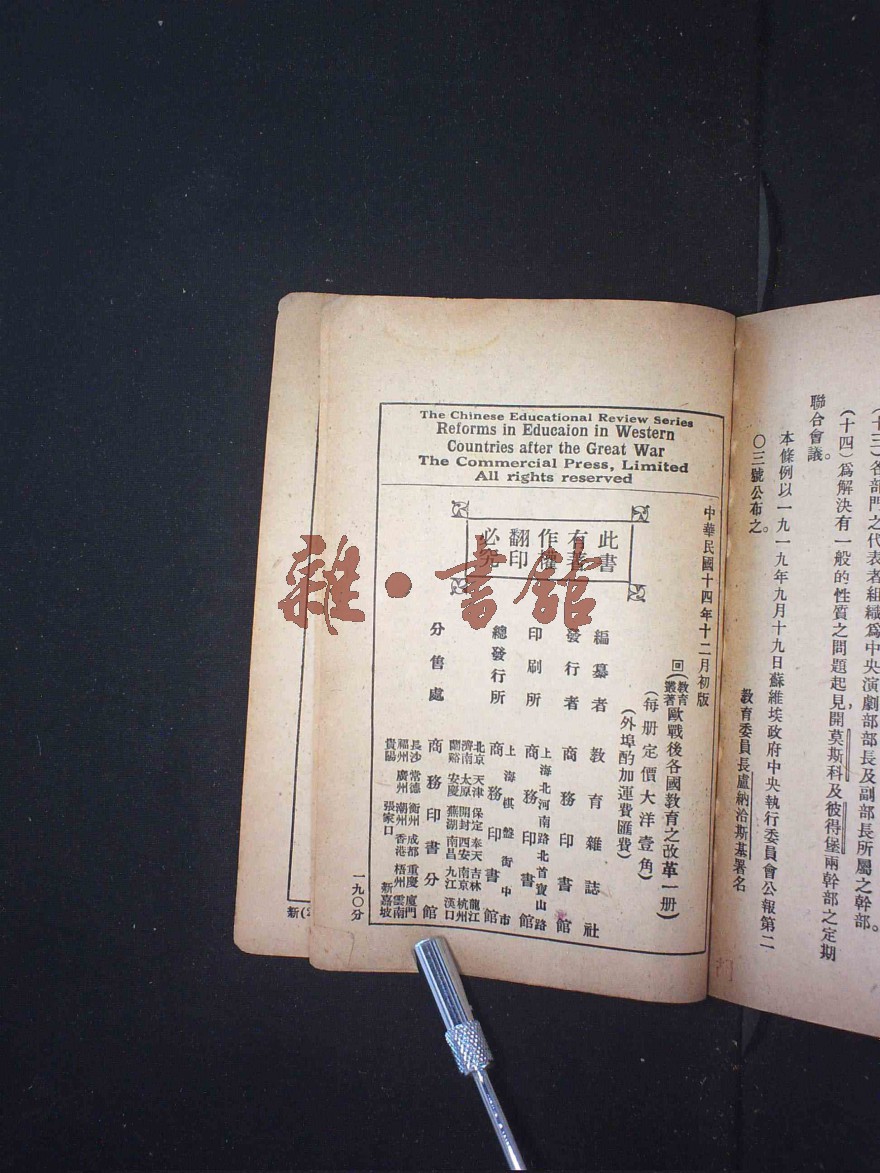 (十三)各部門之代表者組織爲中央演劇部部長及副部長所屬之幹部。
(十四)爲解決有一般的性質之問題起見,開莫斯科及彼得堡兩幹部之定期
聯合會議。
本條例以一九一九年九月十九日蘇維埃政府中央執行委員會公報第二
〇三號公布之。
教育委員長盧納洽斯基署名
The Chinese Educational Review Series
Reforms in Educaion in Western
Countries after the Great War
The Commercial Press, Limited
All rights reserved
中華民國十四年十二月初版
回(教育叢著歐戰後各國教育之改革一册)
(每册定價大洋壹角)
(外埠酌加運費匯費)
此書
有著
作權
翻印
必究
編纂者 教育雜誌社
發行者 商務印書館
上海北河南路北首寶山路
印刷所 商務印書館
上海棋盤街中市
總發行所 商務印書館
北京 天津 保定 奉天 吉林 龍江
濟南 太原 開封 西安 南京 杭州
蘭谿 安慶 蕪湖 南昌 九江 漢口
分售處 商務印書分館
長沙 常德 衡州 成都 重慶 廈門
福州 廣州 潮州 香港 梧州 雲南
貴陽 張家口 新嘉坡
一九〇分
雜·書館